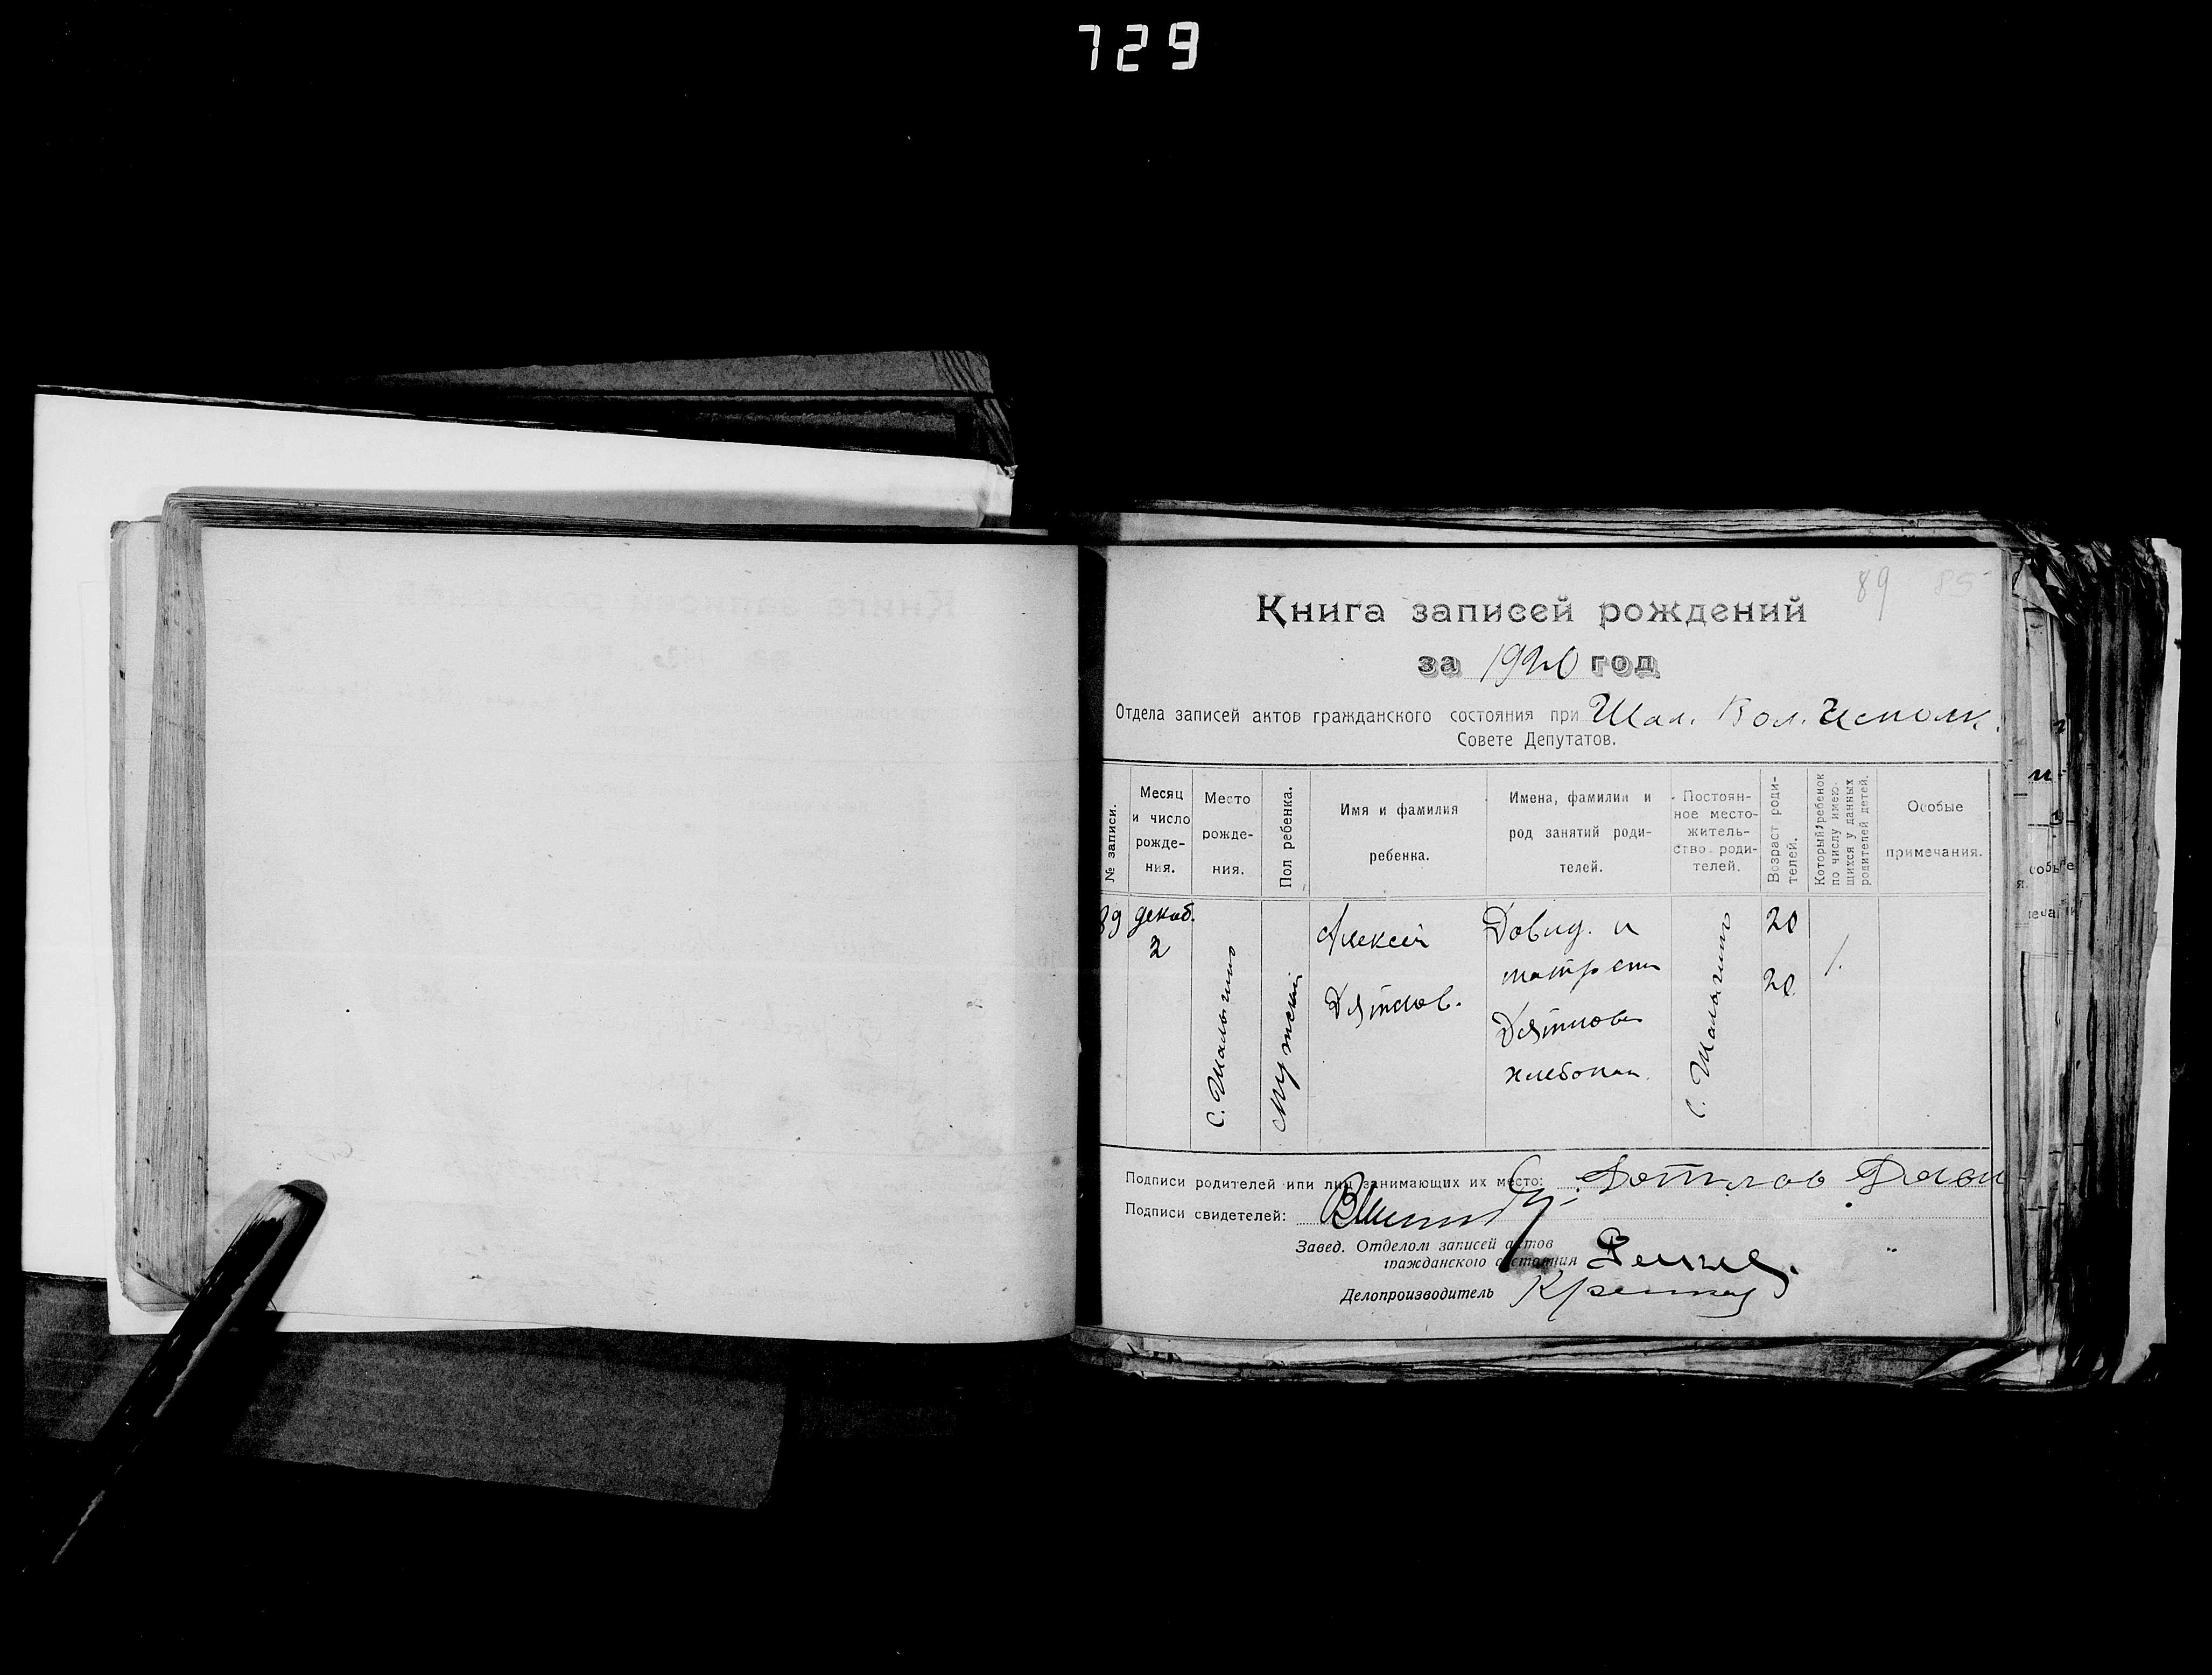 729
89 85
Книга записей рождений
за 1920 год
Отдела записей актов гражданского состояния при Шал. Вол. Исполк.
Совете Депутатов.
№ записи.
Месяц и число рожде-ния.
Место рожде-ния.
Пол ребенка.
Имя и фамилия ребенка.
Имена, фамилии и род занятий роди-телей.
Постоян-ное место-житель-ство роди-телей.
Возраст роди-телей.
Который ребенок по числу имею-щихся у данных родителей детей.
Особые примечания.
89
декаб.
2
С. Шалыгино
Мужский
Алексей
Дятлов.
Довид. и
Дятлов
хлебопаш.
С. Шалыгино
20
20
1.
Подписи родителей или лиц занимающих их место:
Подписи свидетелей:
Завед. Отделом записей актов
гражданского состояния
Делопроизводитель